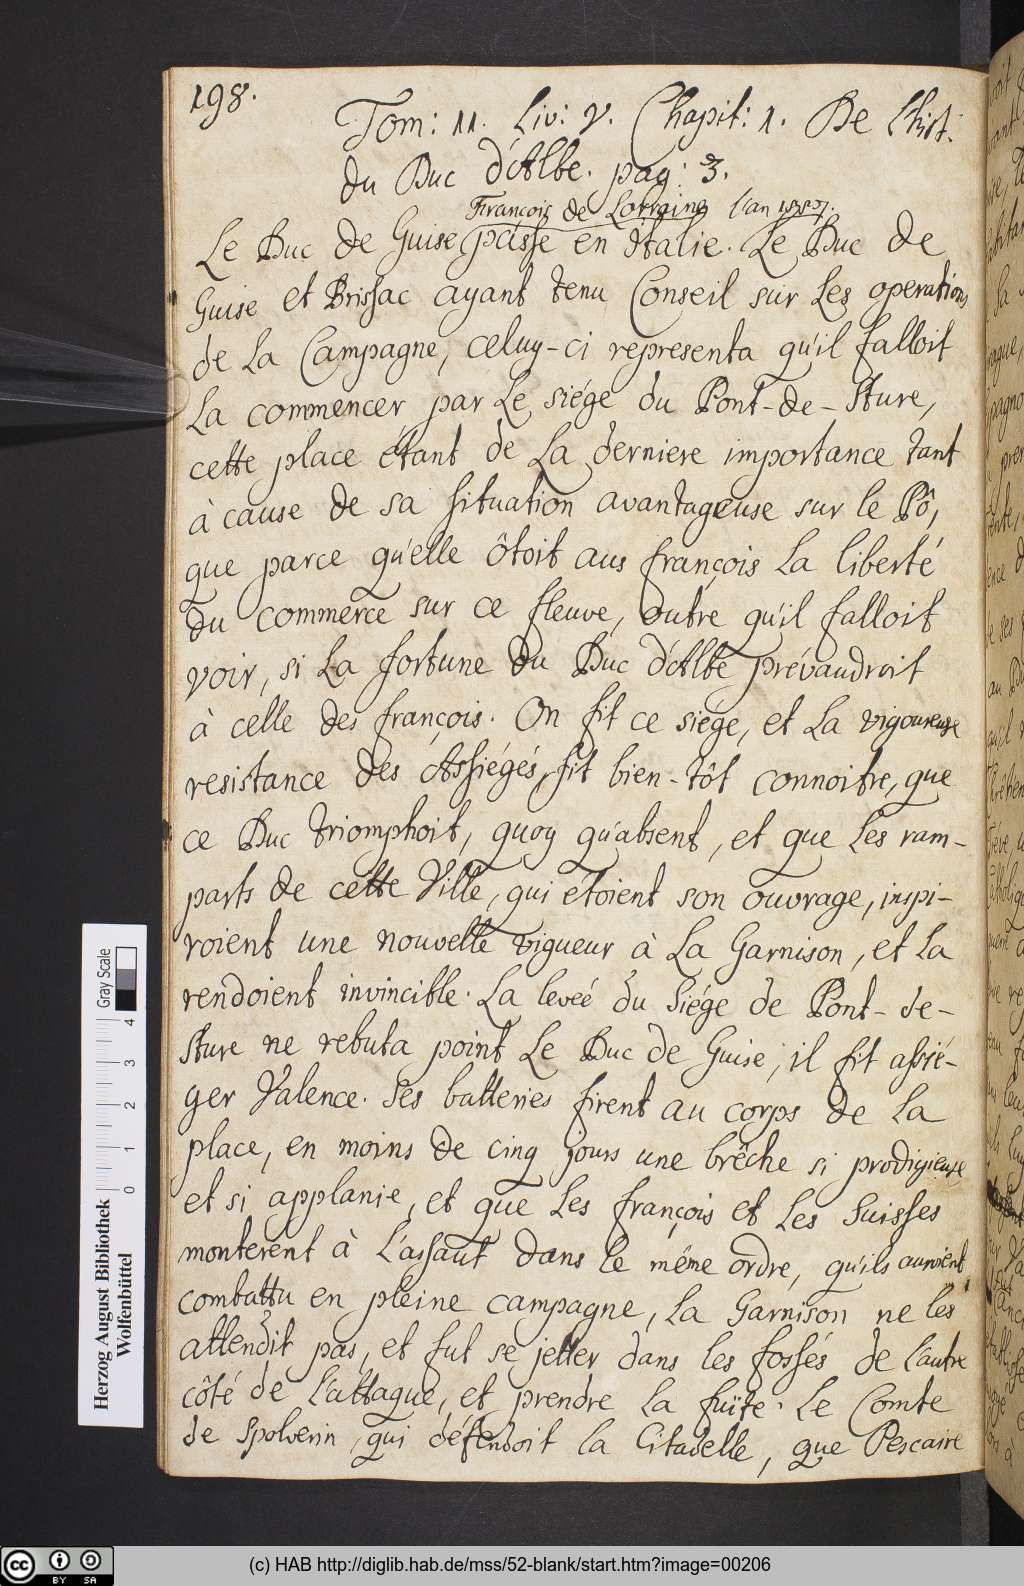 198.
Tom: 11. Liv: V. Chapit: 1. De l'hist:
du Duc d'Albe. pag: 3.
François de Lorraine l'an 1557.
Le Duc de Guise passe en Italie. Le Duc de
Guise et Brissac ayant tenu Conseil sur les operations
de la Campagne, celuy-ci representa qu'il falloit
la commencer par le siége du Pont-de-Sture,
cette place étant de la derniere importance tant
à cause de sa situation avantageuse sur le Pô,
que parce qu'elle ôtoit aus françois la liberté
du commerce sur ce fleuve, outre qu'il falloit
voir, si la fortune du Duc d'Albe prévaudroit
à celle des françois. On fit ce siége, et la vigoureuse
resistance des Assiégés, fit bien-tôt connoitre, que
ce Duc triomphoit, quoy qu'absent, et que les ram-
parts de cette Ville, qui étoient son ouvrage, inspi-
roient une nouvelle vigueur à la Garnison, et la
rendoient invincible. La levée du Siége de Pont-de-
Sture ne rebuta point le Duc de Guise, il fit assié-
ger Valence. Ses batteries firent au corps de la
place, en moins de cinq jours une brêche si prodigieuse
et si applanie, et que les françois et les Suisses
monterent à l'assaut dans le même ordre, qu'ils auroient
combattu en pleine campagne, la Garnison ne les
attendit pas, et fut se jetter dans les fossés de l'autre
côté de l'attaque, et prendre la fuite. Le Comte
de Spolverin, qui défendoit la Citadelle, que Pescaire
Gray Scale
0 1 2 3 4
Herzog August Bibliothek
Wolfenbüttel
cc BY SA
(c) HAB http://diglib.hab.de/mss/52-blank/start.htm?image=00206